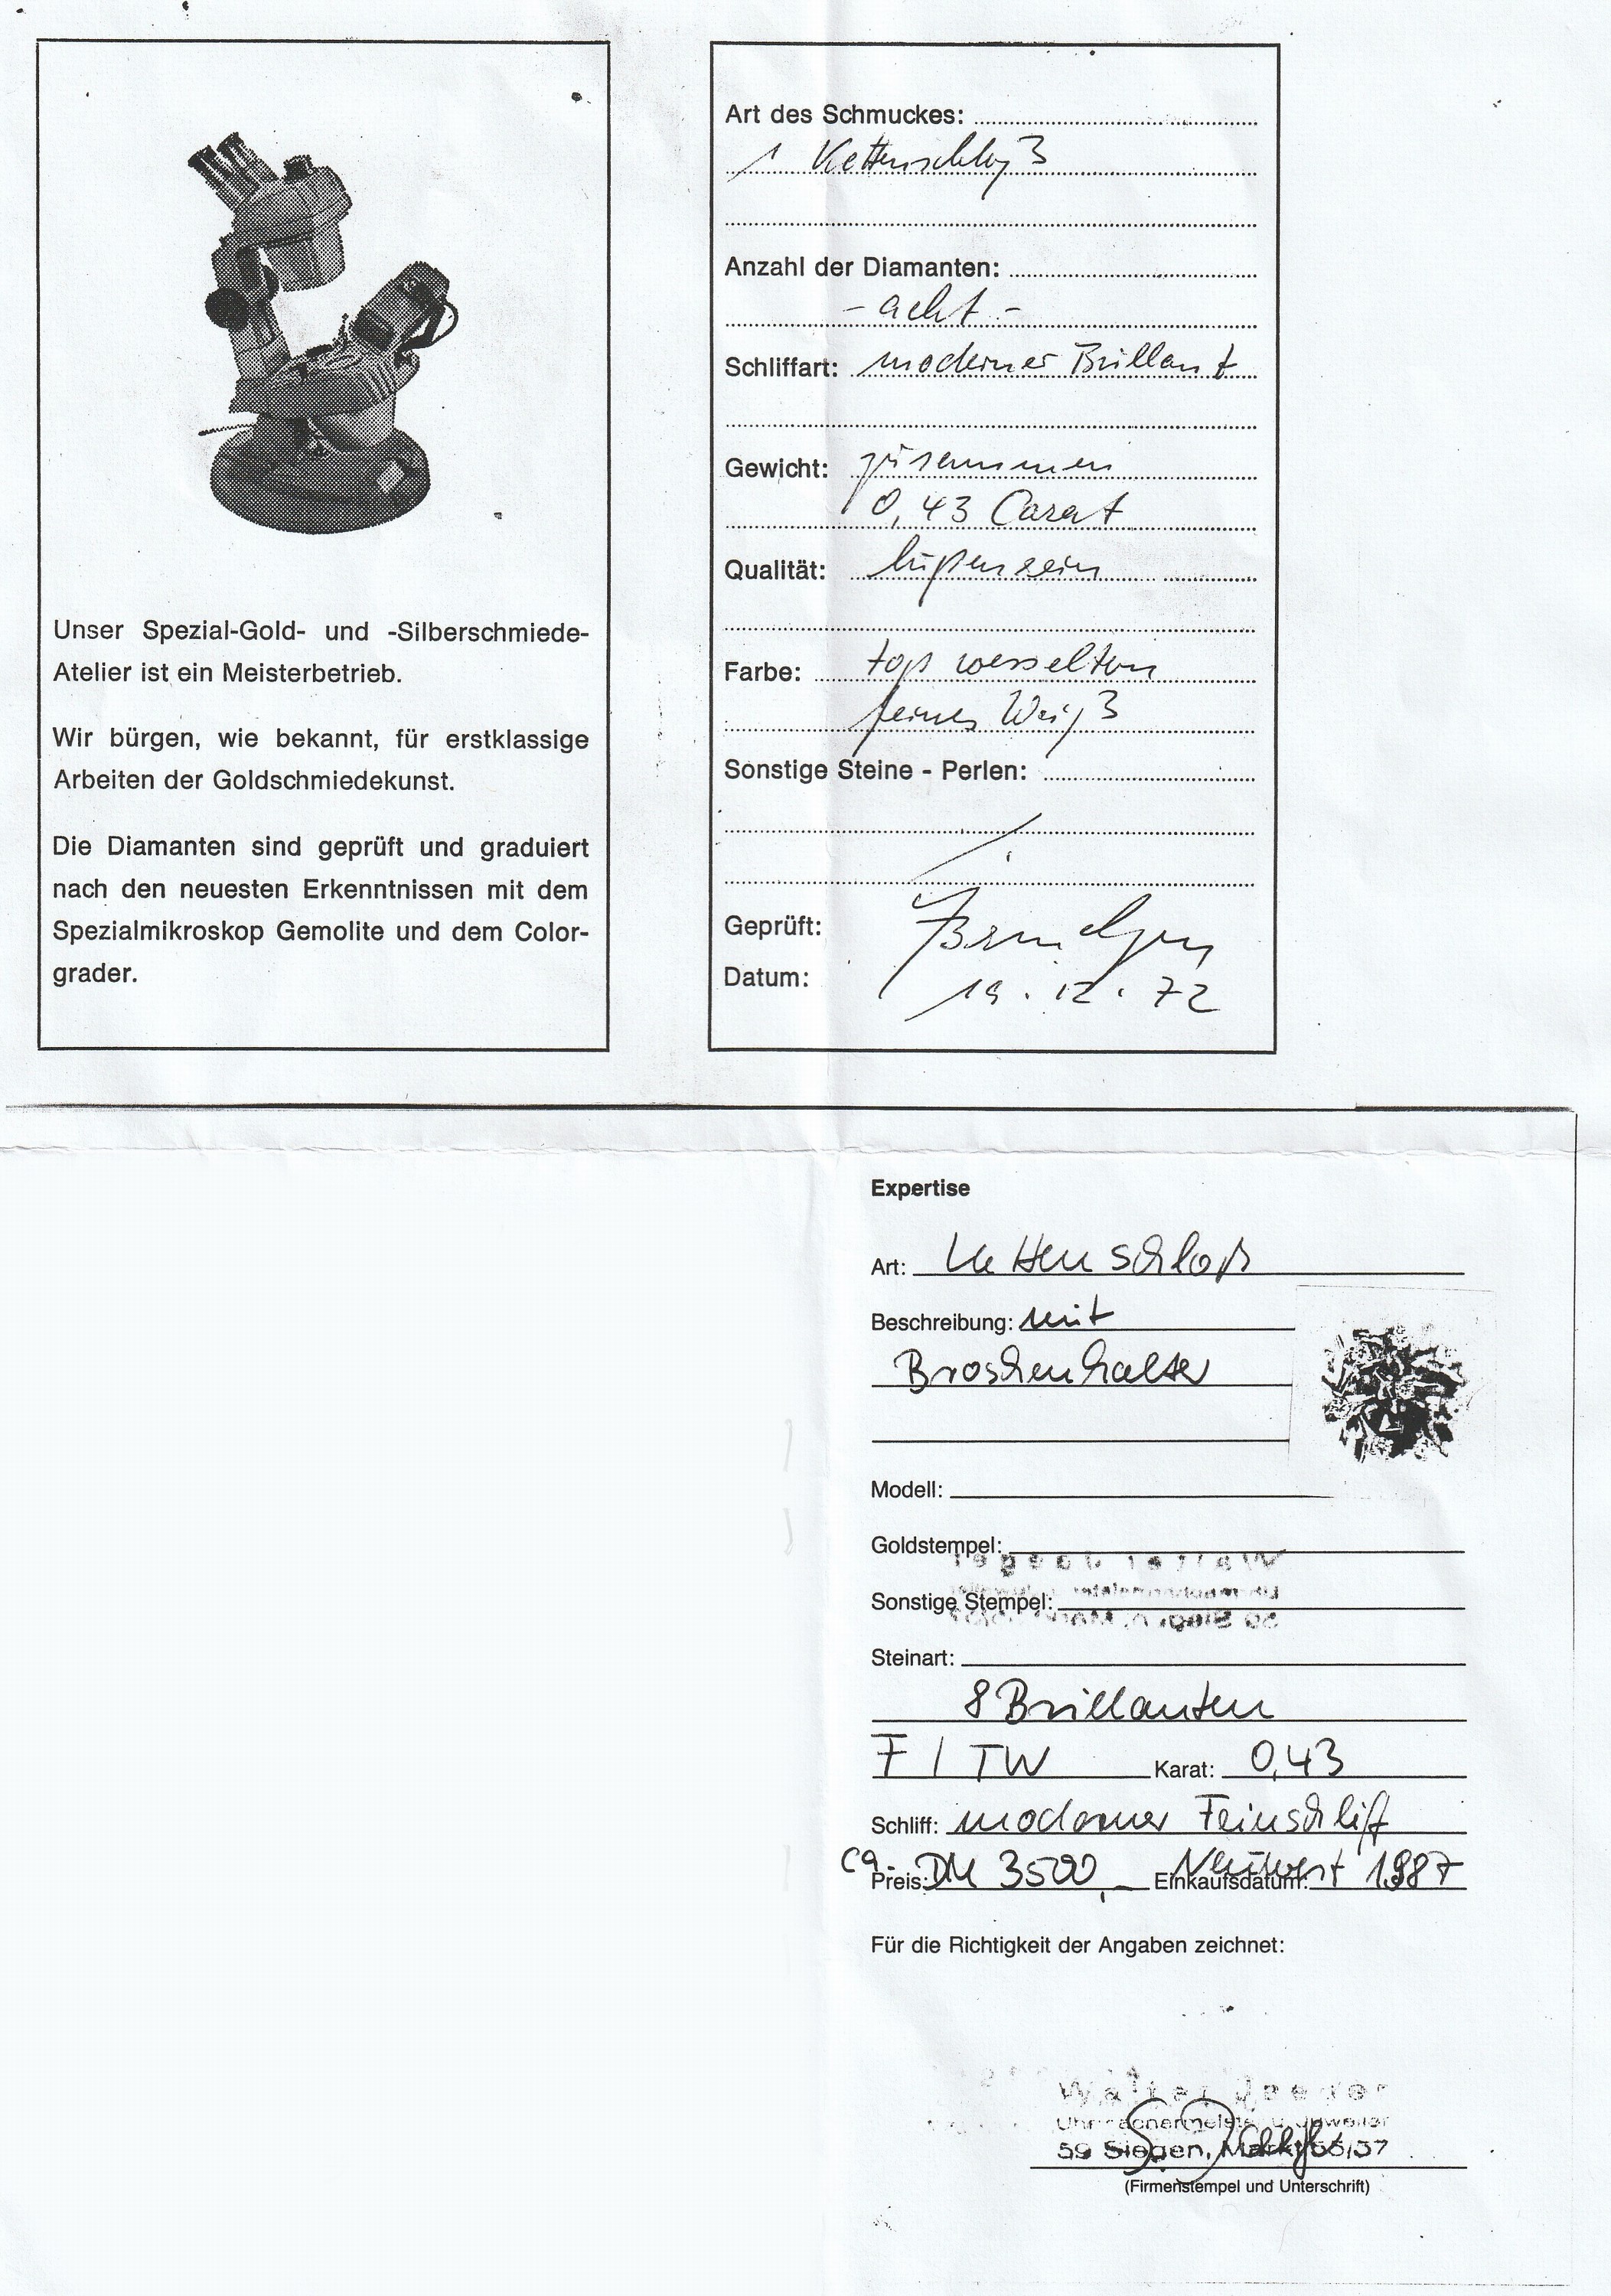 Unser Spezial-Gold- und -Silberschmiede-
Atelier ist ein Meisterbetrieb.
Wir bürgen, wie bekannt, für erstklassige
Arbeiten der Goldschmiedekunst.
Die Diamanten sind geprüft und graduiert
nach den neuesten Erkenntnissen mit dem
Spezialmikroskop Gemolite und dem Color-
grader.
Art des Schmuckes:
1 Kettenschloß
Anzahl der Diamanten:
- acht -
Schliffart: moderner Brillant
Gewicht: zusammen
0,43 Carat
Qualität: lupenrein
Farbe: top wesselton
feines Weiß
Sonstige Steine - Perlen:
Geprüft:
Datum: 19.12.72
Expertise
Art: Kettenschloß
Beschreibung: mit
Broschenhalter
Modell:
Goldstempel:
Sonstige Stempel:
Steinart:
8 Brillanten
F / TW Karat: 0,43
Schliff: moderner Feinschliff
ca. Preis: DM 3500,- Einkaufsdatum: Neuwert 1987
Für die Richtigkeit der Angaben zeichnet:
Walter Jaeger
Uhrmachermeister u. Juwelier
59 Siegen, Markt 55/57
(Firmenstempel und Unterschrift)